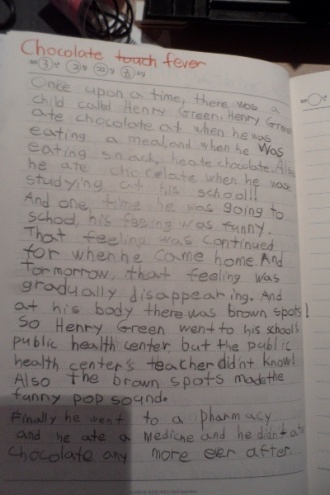 Chocolate touch fever
Once upon a time, there was a
child called Henry Green. Henry Green
ate chocolate at when he was
eating a meal and when he was
eating snack, he ate chocolate. Also
he ate chocelate when he was
studying at his school!
And one time he was going to
school, his feeling was funny.
That feeling was continued
for when he come home And
Tormorrow, that feeling was
gradually disappearing. And
at his body there was brown spots!
So Henry Green went to his school's
public health center, but the public
health center's teacher didn't know!
Also the brown spots made the
funny pop sound.
Finally he went to a pharmacy
and he ate a mediche and he didn't ate
chocolate any more ever after...